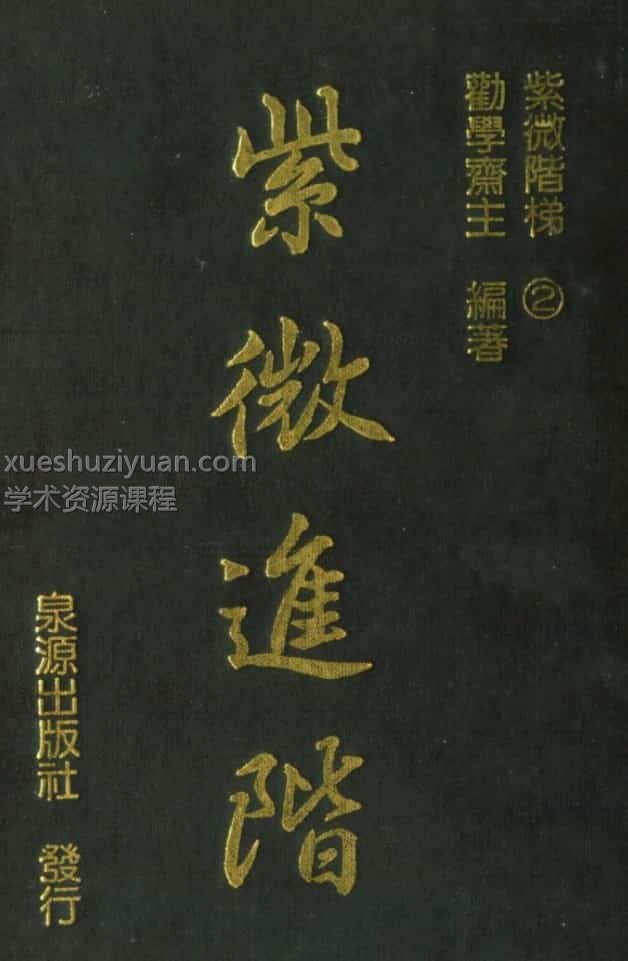 紫微階梯 ②
勸學齋主 編著
紫微進階
xueshuziyuan.com
学术资源课程
泉源出版社 發行